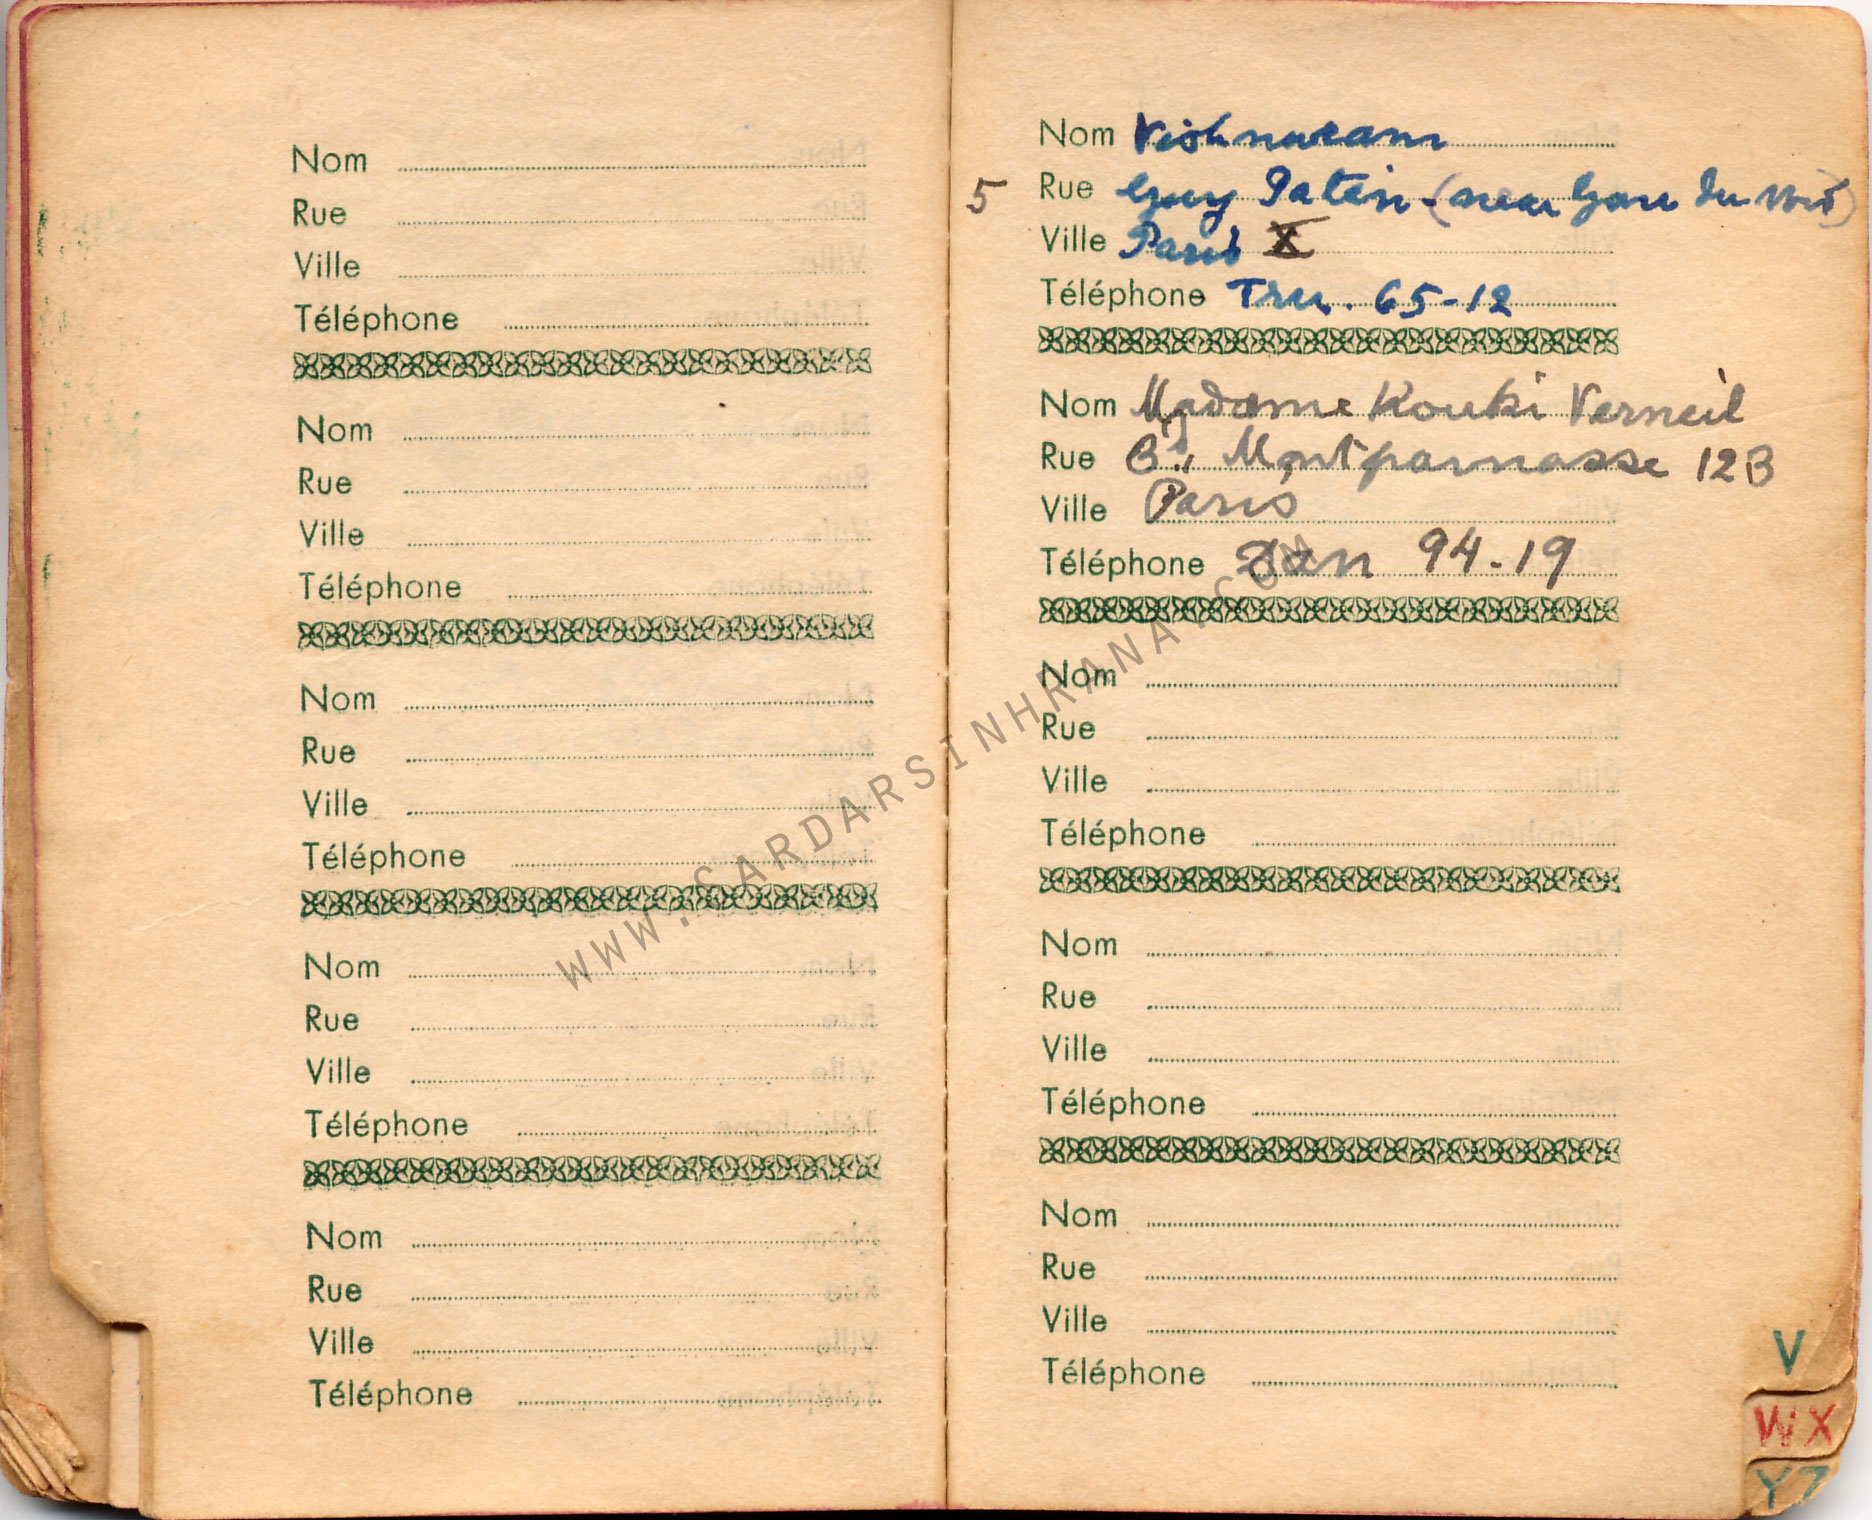 Nom
Rue
Ville
Téléphone
Nom
Rue
Ville
Téléphone
Nom
Rue
Ville
Téléphone
Nom
Rue
Ville
Téléphone
Nom
Rue
Ville
Téléphone
Nom Vishnuram
5 Rue Guy Patin (near Gare du Nord)
Ville Paris X
Téléphone Tru. 65-12
Nom Madame Kouki Verneil
Rue Bd. Montparnasse 123
Ville Paris
Téléphone Dan 94-19
Nom
Rue
Ville
Téléphone
Nom
Rue
Ville
Téléphone
Nom
Rue
Ville
Téléphone
V
WX
YZ
WWW.SARDARSINHRANA.COM